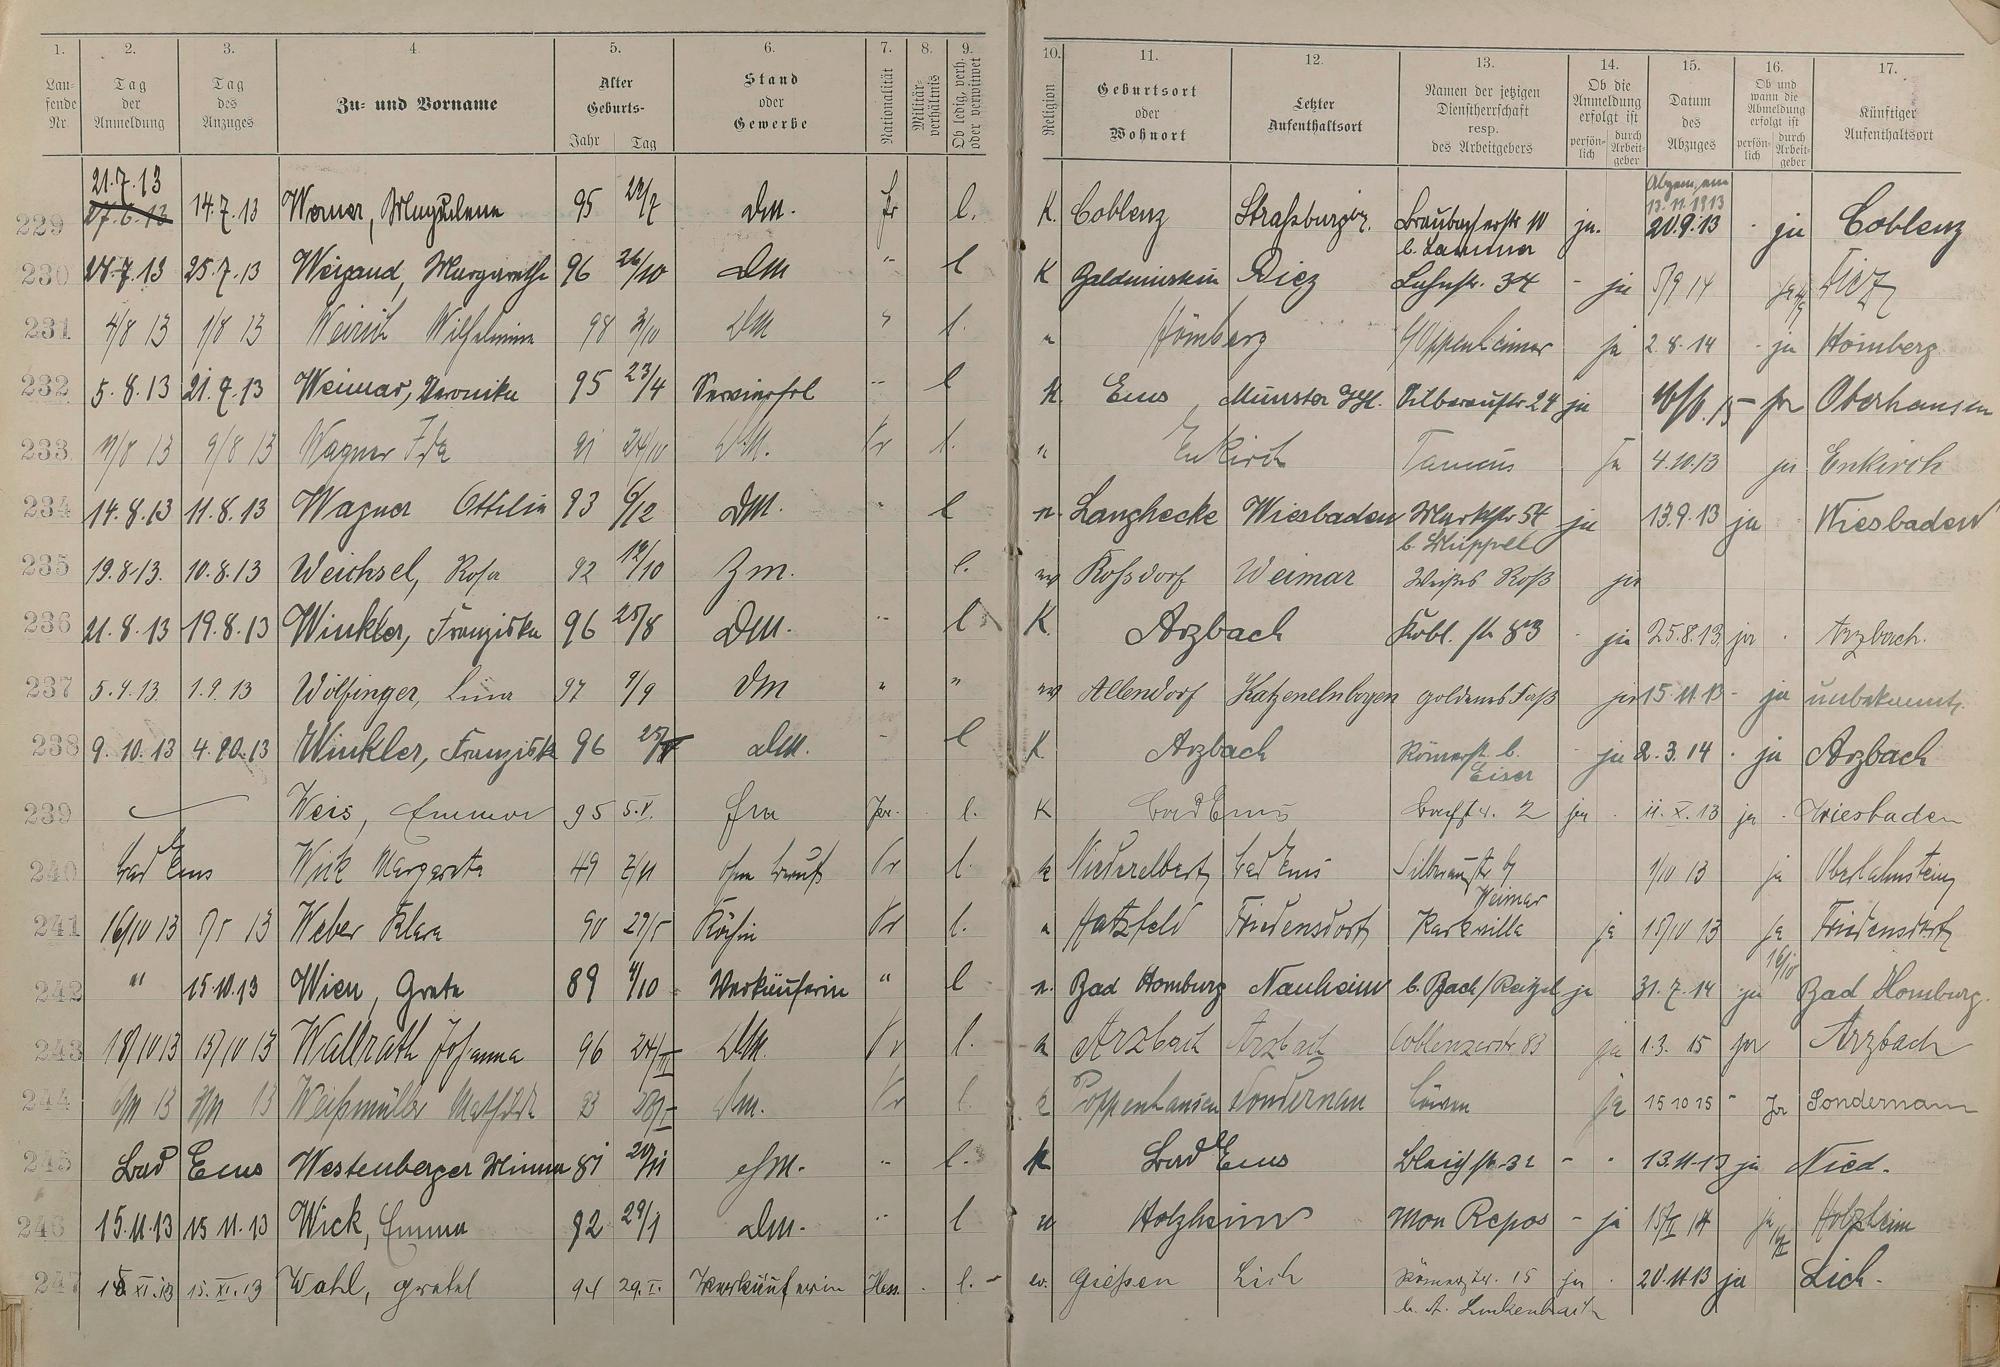 1. 2. 3. 4. 5. 6. 7. 8. 9. 10. 11. 12. 13. 14. 15. 16. 17.
Laufende Nr. Tag der Anmeldung Tag des Anzuges Zu- und Vorname Alter Geburts- Jahr Tag Stand oder Gewerbe Nationalität Militärverhältnis Ob ledig, verh. oder verwitwet Religion Geburtsort oder Wohnort Letzter Aufenthaltsort Namen der jetzigen Dienstherrschaft resp. des Arbeitgebers Ob die Anmeldung erfolgt ist persönlich durch Arbeitgeber Datum des Abzuges Ob und wann die Abmeldung erfolgt ist persönlich durch Arbeitgeber Künftiger Aufenthaltsort
21.7.13
13.11.1913
229 27.6.13 14.7.13 Werner, Magdalena 95 22/7 DM. Pr l. K. Coblenz Straßburg Braubacherstr 10 ja. 20.9.13 - ja Coblenz
b. Lammer
230 28.7.13 25.7.13 Weigand, Margarethe 96 26/10 DM " l K Diez Lahnstr. 34 - ja 5/9 14 Diez
231 4/8 13 1/8 13 Weirich Wilhelmine 98 DM " l. " Hömberg Oppenheimer ja 2.8.14 - ja Hömberg
232 5.8.13 21.7.13 Weimar, Veronika 95 23/4 Servierfrl " l K. Ems Münster Silberaustr 24 ja Oberhausen
233 9/8 13 Wagner Ida 91 24/10 DM. Pr l. " Enkirch Taunus ja 4.10.13 ja Enkirch
234 14.8.13 11.8.13 Wagner Ottilie 93 6/12 DM. " l n. Langhecke Wiesbaden Marktstr 54 ja 13.9.13 ja Wiesbaden
b. Müppel
235 19.8.13. 10.8.13 Weichsel, Rosa 92 12/10 Zm. l. ev Roßdorf Weimar Weißes Roß ja
236 21.8.13 19.8.13 Winkler, Franziska 96 25/8 DM. " l K. Arzbach Kobl. str 83 - ja 25.8.13 ja - Arzbach.
237 5.9.13. 1.9.13 Wölfinger, Lina 97 9/9 DM " " ev Allendorf Katzenelnbogen goldenes Faß ja 15.11.13 - ja unbekannt.
238 9.10.13 4.10.13 Winkler, Franziska 96 DM. - l K Arzbach Römerstr. b. - ja 2.3.14 - ja Arzbach
Eiser
239 Weis, Emma 95 5.V. Pr. l. K Bad Ems Bachstr. 2 ja . 11.X.13 ja . Wiesbaden
240 Bad Ems Wick Margareta 49 2/11 ohne Beruf Pr l. k Niederelbert Bad Ems Silberaustr 1/10 13 ja Oberlahnstein
Weimar
241 16/10 13 13 Weber Klara 90 29/5 Köchin Pr l. " Hatzfeld Friedensdorf Parkvilla ja 15/10 13 ja Friedensdorf
16/10
242 " 15.10.13 Wien, Grete 89 4/10 Verkäuferin " l n. Bad Homburg Nauheim b. Bach/ ja 31.7.14 ja Bad Homburg.
243 18/10 13 15/10 13 Wallrath Johanna 96 24/III DM. Pr l. k Arzbach Arzbach Coblenzerstr 83 ja 1.3.15 ja Arzbach
244 13 13 Weißmüller Mathilde 93 DM. Pr l. k Poppenhausen Sondernau Löwen ja 15 10 15 - ja Sondernau
245 Bad Ems Westenberger Minna 81 20/11 " l. k Bad Ems Bleichstr. 32 - - 13.11.13 ja Nied.
246 15.11.13 15 11.13 Wick, Emma 92 29/1 DM. " l Holzheim Mon Repos - ja ja Holzheim
247 XI.13 15.XI.13 Wahl, Gretel 94 29.I. Verkäuferin Hess. . l. - ev. Gießen Lich Römerstr. 15 ja . 20.11.13 ja Lich.
b. A. Linkenbach